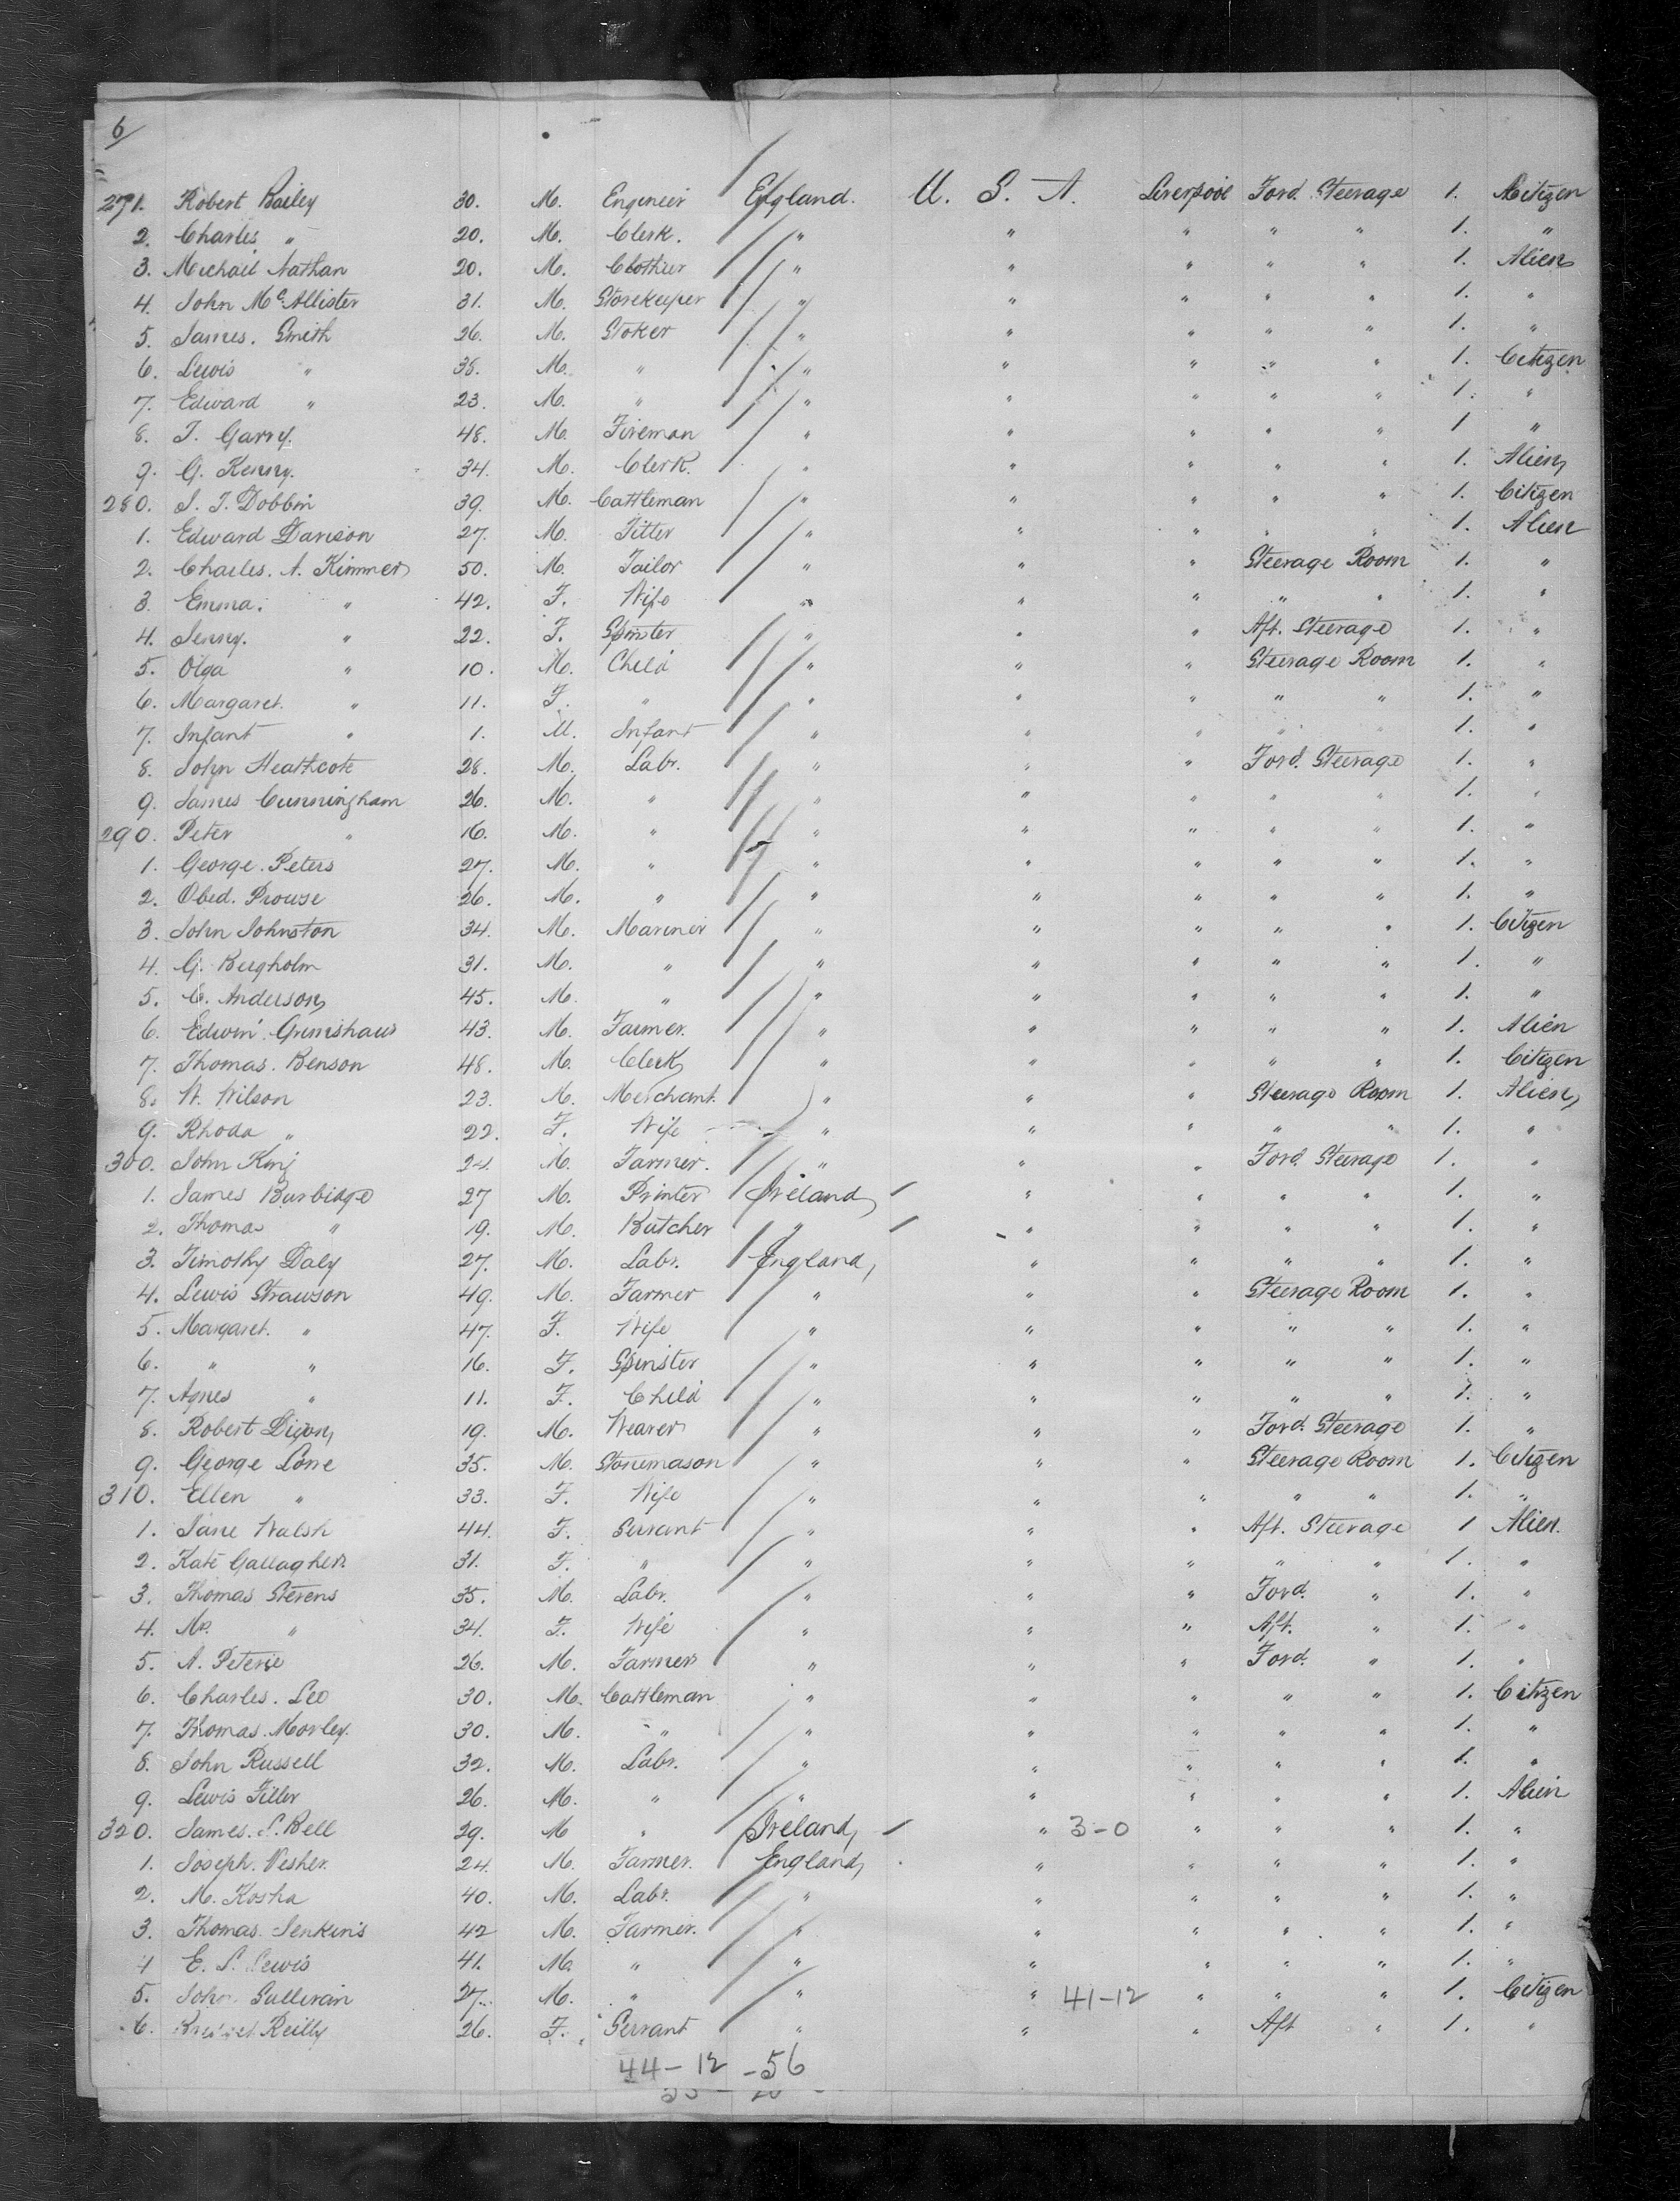 6
271. Robert Bailey 30. M. Engineer England. U. S. A. Liverpool Ford. Steerage 1. Citizen
2. Charles " 20. M. Clerk. " " " " " 1. "
3. Michael Nathan 20. M. Clothier " " " " " 1. Alien
4. John McAllister 31. M. Storekeeper " " " " " 1. "
5. James. Smith 26. M. Stoker " " " " " 1. "
6. Lewis " 35. M. " " " " " " 1. Citizen
7. Edward " 23. M. " " " " " " 1. "
8. T. Garry. 48. M. Fireman " " " " " 1 "
9. G. Kenny. 34. M. Clerk. " " " " " 1. Alien
280. S. T. Dobbin 39. M. Cattleman " " " " " 1. Citizen
1. Edward Davison 27. M. Fitter " " " " " 1. Alien
2. Charles. A. Kimmer 50. M. Tailor " " " Steerage Room 1. "
3. Emma. " 42. F. Wife " " " " " 1. "
4. Jenny. " 22. F. Spinster " " " Aft. Steerage 1. "
5. Olga " 10. M. Child " " " Steerage Room 1. "
6. Margaret. " 11. F. " " " " " " 1. "
7. Infant " 1. M. Infant " " " " " 1. "
8. John Heathcote 28. M. Labr. " " " Ford. Steerage 1. "
9. James Cunningham 26. M. " " " " " " 1. "
290. Peter " 16. M. " " " " " " 1. "
1. George. Peters 27. M. " " " " " " 1. "
2. Obed. Prouse 26. M. " " " " " " 1. "
3. John Johnston 34. M. Mariner " " " " " 1. Citizen
4. G. Bergholm 31. M. " " " " " " 1. "
5. C. Anderson 45. M. " " " " " " 1. "
6. Edwin Grimshaw 43. M. Farmer. " " " " " 1. Alien
7. Thomas. Benson 48. M. Clerk " " " " " 1. Citizen
8. W. Wilson 23. M. Merchant. " " " Steerage Room 1. Alien
9. Rhoda " 22. F. Wife " " " " " 1. "
300. John King 24. M. Farmer. " " " Ford. Steerage 1. "
1. James Burbidge 27 M. Printer Ireland " " " " 1. "
2. Thomas " 19. M. Butcher " " " " " 1. "
3. Timothy Daly 27. M. Labr. England " " " " 1. "
4. Lewis Strawson 49. M. Farmer " " " Steerage Room 1. "
5. Margaret. " 47. F. Wife " " " " " 1. "
6. " " 16. F. Spinster " " " " " 1. "
7. Agnes " 11. F. Child " " " " " 1. "
8. Robert Dixon 19. M. Weaver " " " Ford. Steerage 1. "
9. George Lorne 35. M. Stonemason " " " Steerage Room 1. Citizen
310. Ellen " 33. F. Wife " " " " " 1. "
1. Jane Walsh 44. F. Servant " " " Aft. Steerage 1 Alien.
2. Kate Gallagher 31. F. " " " " " " 1. "
3. Thomas Stevens 35. M. Labr. " " " Ford. " 1. "
4. Mrs. " 34. F. Wife " " " Aft. " 1. "
5. A. Peterse 26. M. Farmer " " " Ford. " 1. "
6. Charles. Leo 30. M. Cattleman " " " " " 1. Citizen
7. Thomas. Morley. 30. M. " " " " " " 1. "
8. John Russell 32. M. Labr. " " " " " 1. "
9. Lewis Filler 26. M. " " " " " " 1. Alien
320. James. S. Bell 29. M " Ireland " 3-0 " " " 1. "
1. Joseph. Vesher. 24. M. Farmer. England " " " " 1. "
2. M. Kosha 40. M. Labr. " " " " " 1. "
3. Thomas. Jenkins 42 M. Farmer. " " " " " 1. "
4 E. S. Lewis 41. M. " " " " " " 1. "
5. John Sullivan 27. M. " " " 41-12 " " " 1. Citizen
6. Reilly 26. F. Servant " " " Aft " 1. "
44-12 -56